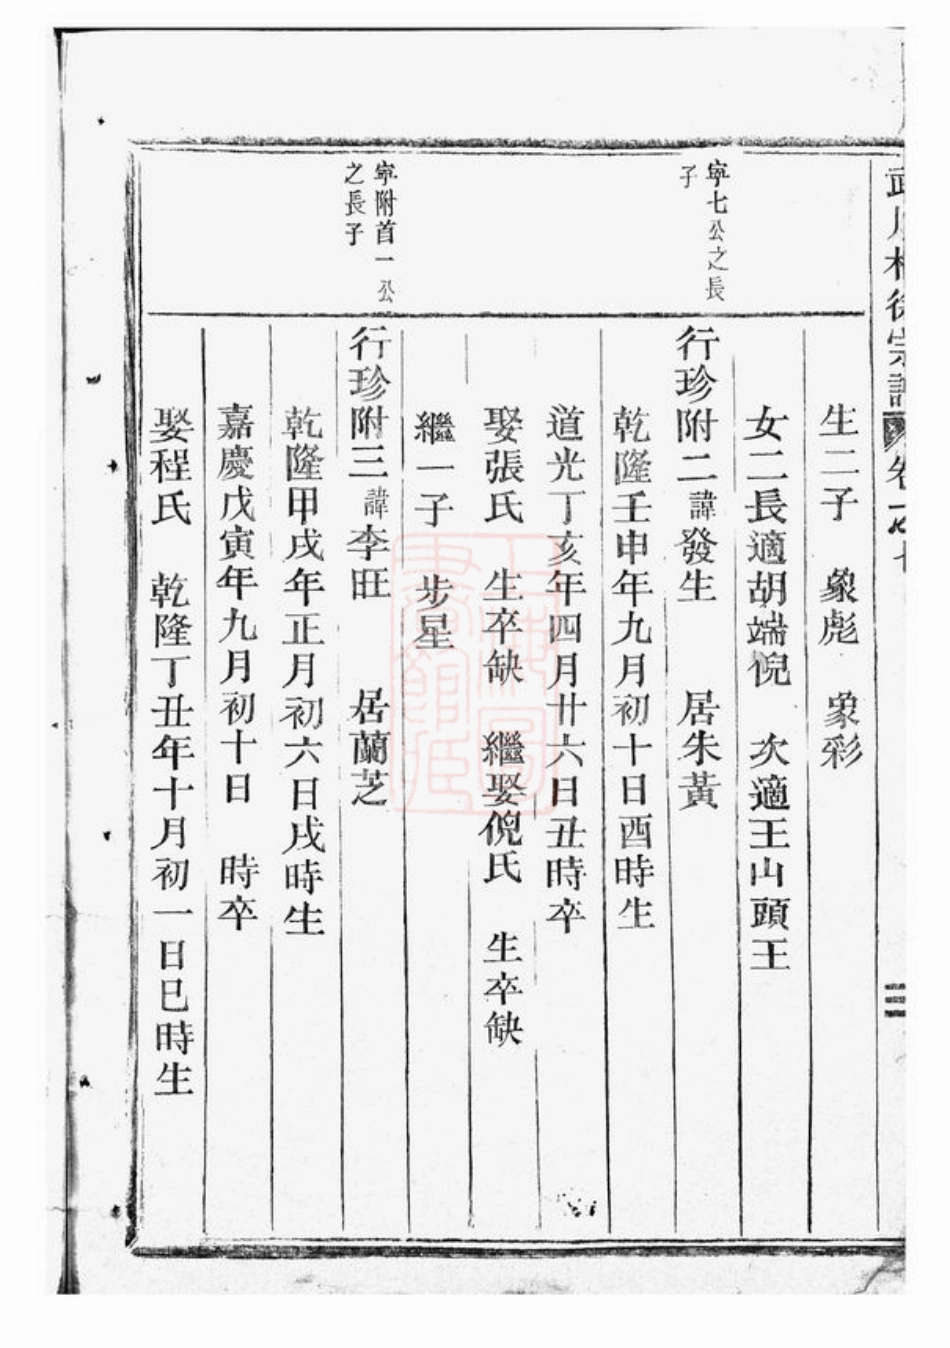 生二子 象彪 象彩
女二長適胡端倪 次適王山頭王
寧七公之長
子
行珍附二諱發生 居朱黃
乾隆壬申年九月初十日酉時生
道光丁亥年四月廿六日丑時卒
娶張氏 生卒缺 繼娶倪氏 生卒缺
繼一子 步星
寧附首一公
之長子
行珍附三諱李旺 居蘭芝
乾隆甲戌年正月初六日戌時生
嘉慶戊寅年九月初十日 時卒
娶程氏 乾隆丁丑年十月初一日巳時生